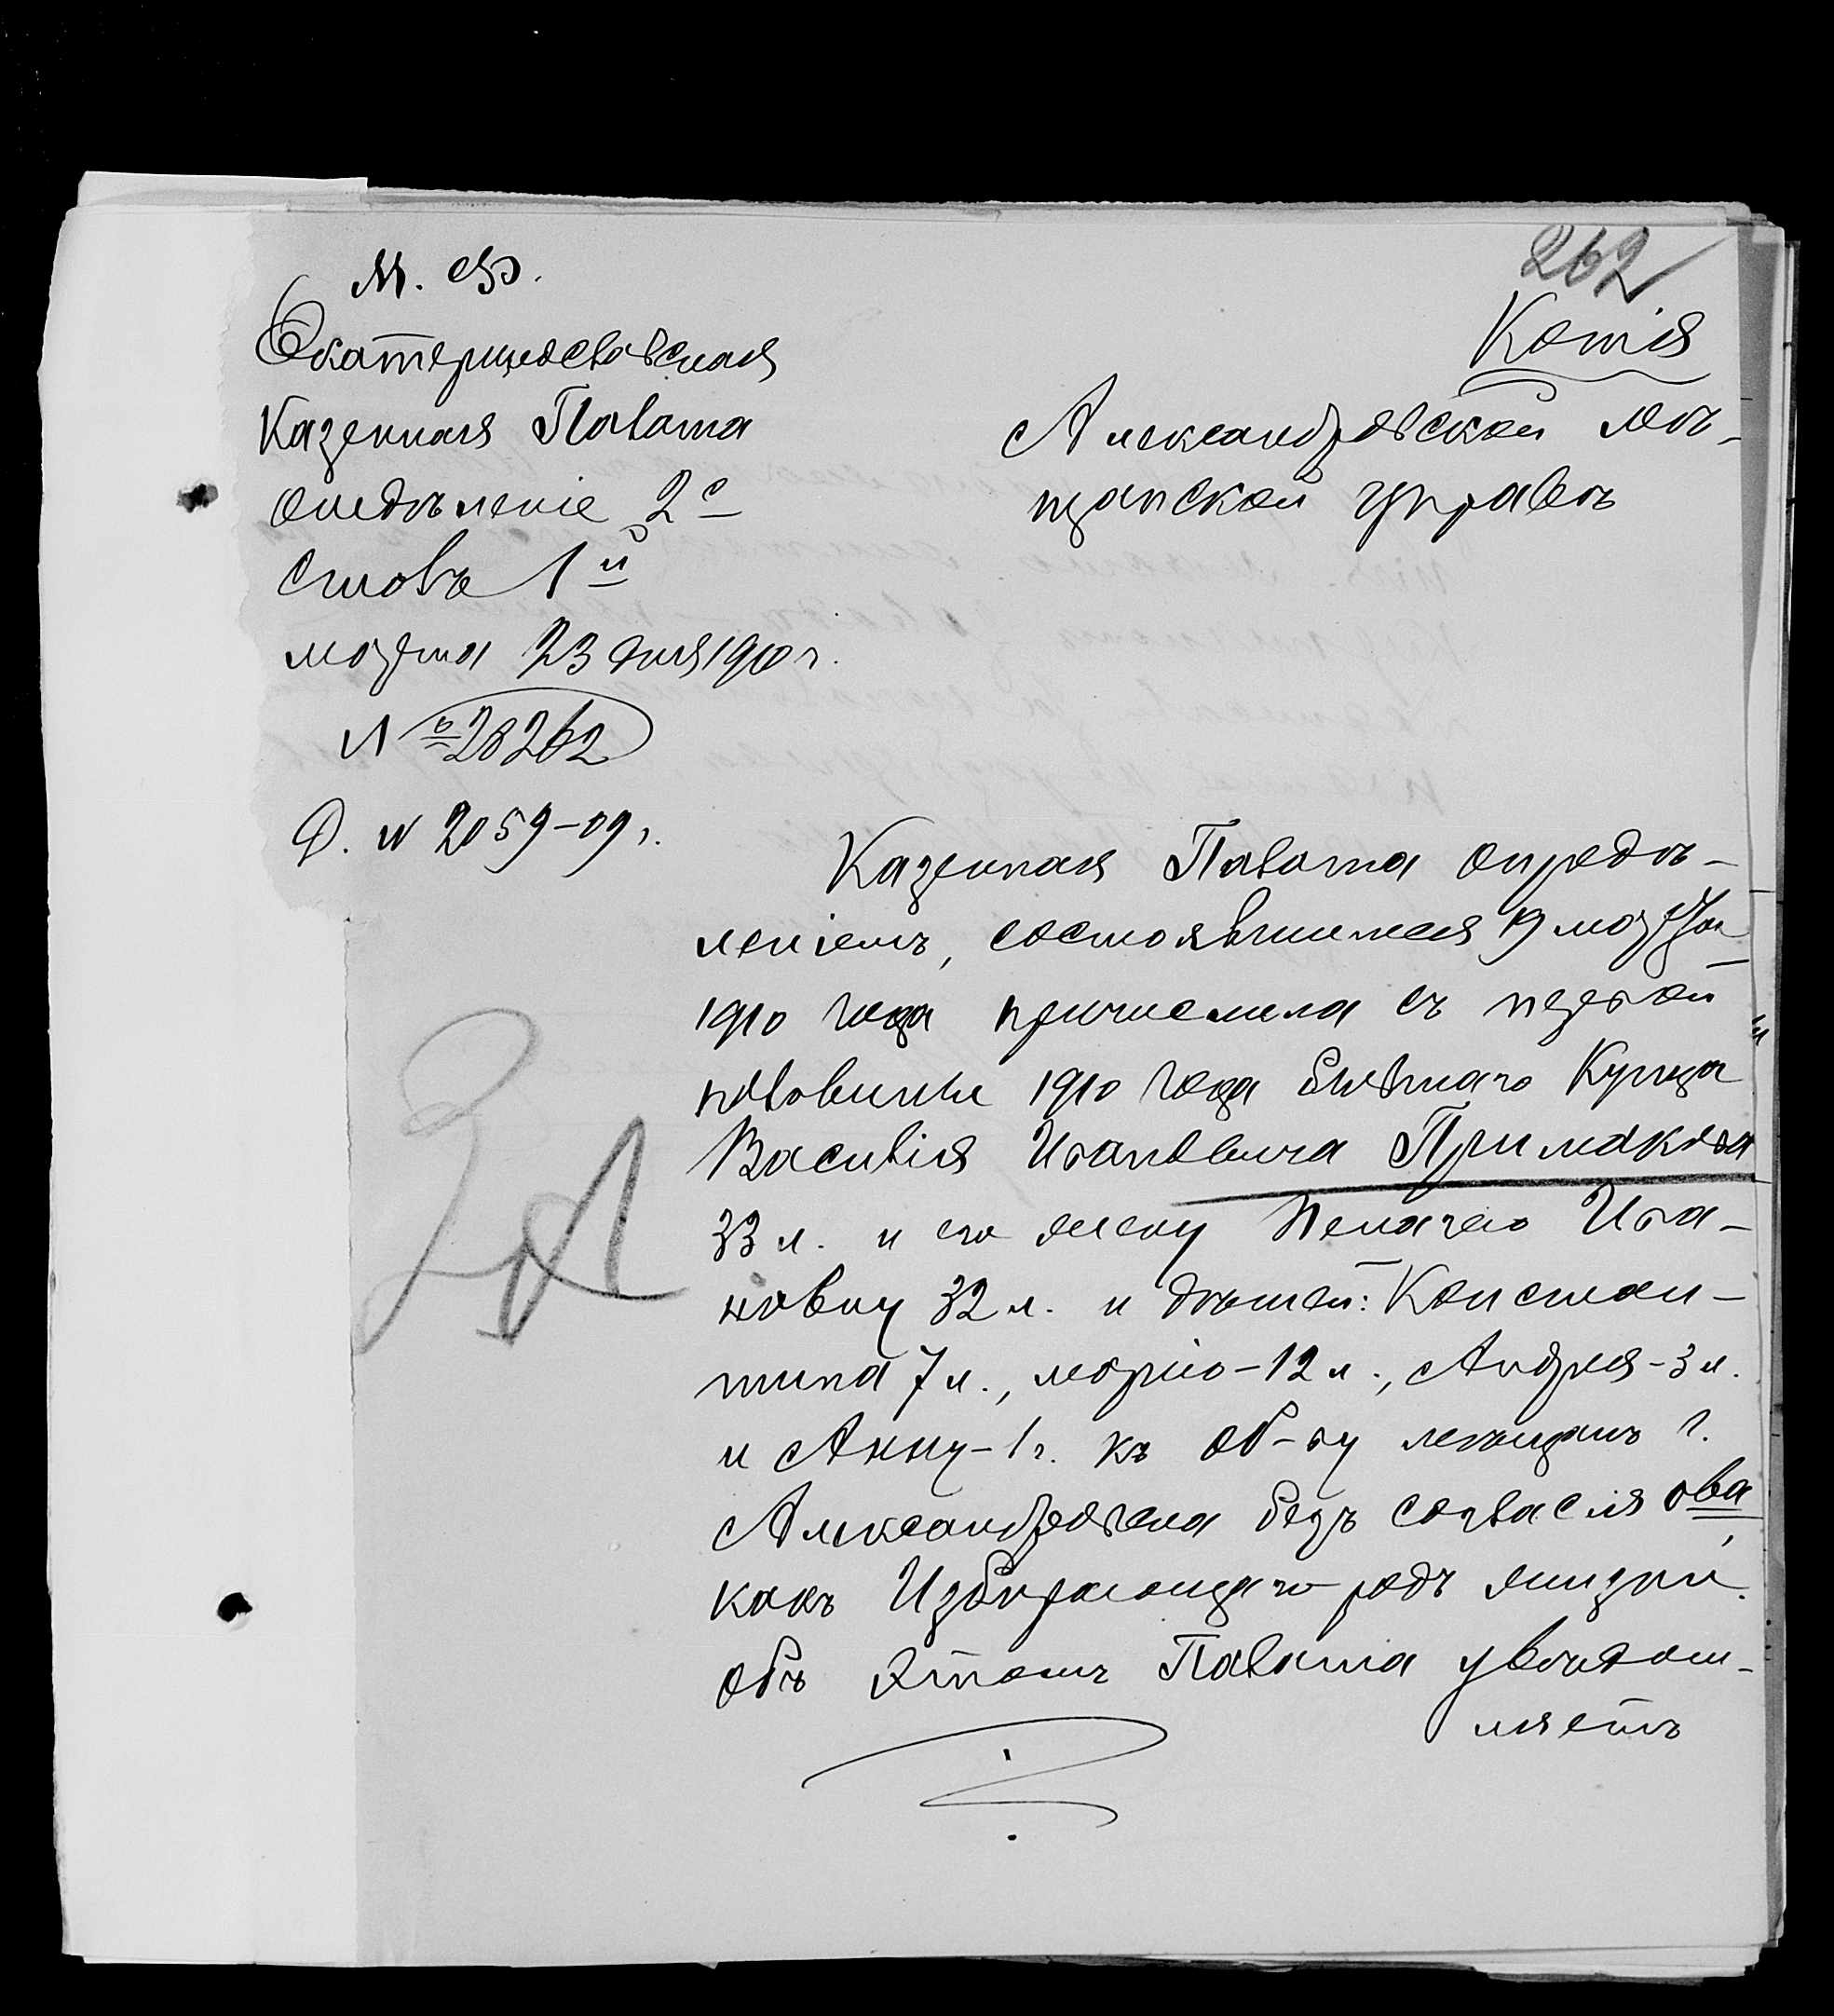 262
М. Ф.
Копія
Екатеринославская
Казенная Палата
Отдѣленіе 2е
Столъ 1й
марта 23 дня 1910 г.
№ 28262
Д. № 2059-09 г.
Александровской мѣ-
щанской управѣ
Казенная Палата опредѣ-
леніемъ, состоявшимся 19 марта
1910 года причислила съ первой
половины 1910 года бывшаго Купца
Василія Ивановича Примакова
33 л. и его жену Пелагею Ива-
новну 32 л. и дѣтей: Констан-
тина 7 л., Марію-12 л., Андрея-3 л.
и Анну-1 г. къ об-ву мѣщанъ г.
Александровска безъ согласія о̲в̲а̲,
какъ Избирающаго родъ жизни.
Объ этомъ Палата увѣдом-
ляетъ